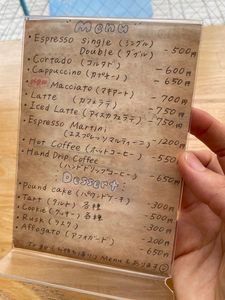 Menu
・Espresso Single (シングル)
Double (ダブル) -500円
・Cortado (コルタド) -600円
・Cappuccino (カプチーノ) -650円
Macciato (マキアート) -700円
・Latte (カフェラテ) -750円
・Iced Latte (アイスカフェラテ) -750円
・Espresso Martini
(エスプレッソマルティーニ) -1200円
・Hot Coffee (ホットコーヒー) -550円
・Hand Drip Coffee
(ハンドドリップコーヒー) -650円
Dessert
・Pound cake (パウンドケーキ) -300円
・Tart (タルト) 各種 -500円
・Cookie (クッキー) 各種 -300円
・Rusk (ラスク) -200円
・Affogato (アフォガード) -650円
Menuもあります